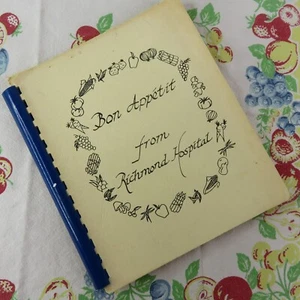 Bon Appétit
from
Richmond Hospital